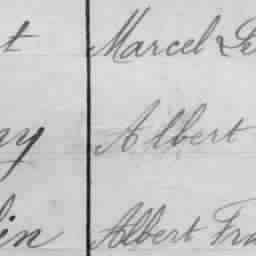 t Marcel
ny Albert
lin Albert Fra